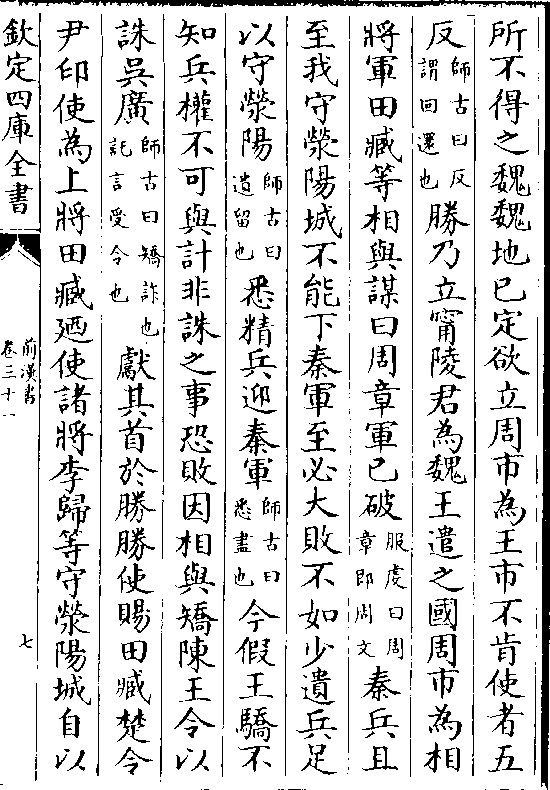 所不得之魏魏地已定欲立周市為王市不肯使者五
反師古曰反謂回還也勝乃立甯陵君為魏王遣之國周市為相
將軍田臧等相與謀曰周章軍已破服虔曰周章即周文秦兵且
至我守滎陽城不能下秦軍至必大敗不如少遺兵足
以守滎陽師古曰遺留也悉精兵迎秦軍師古曰悉盡也今假王驕不
知兵權不可與計非誅之事恐敗因相與矯陳王令以
誅吳廣師古曰矯詐也託言受令也獻其首於勝勝使賜田臧楚令
尹印使為上將田臧廼使諸將李歸等守滎陽城自以
欽定四庫全書
前漢書
卷三十一
七